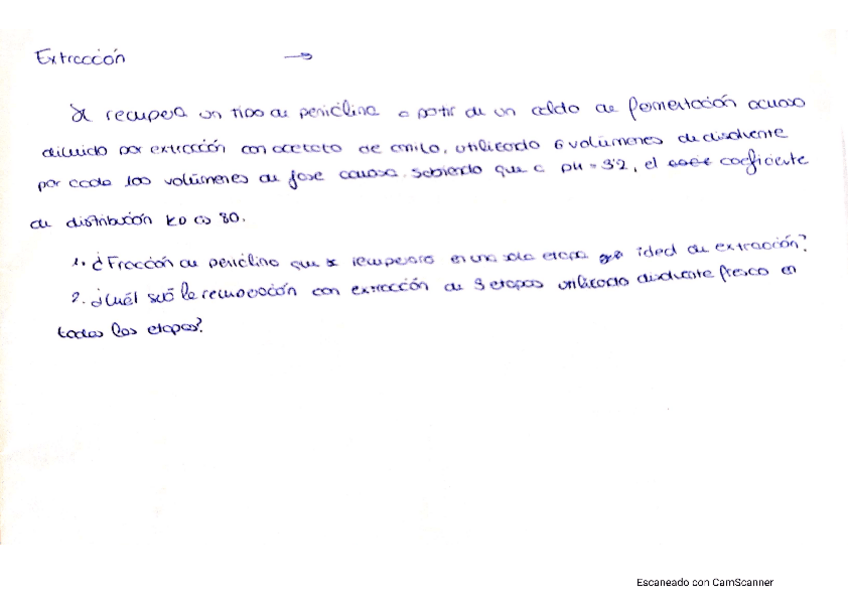 Extracción →
Se recupera un tipo de penicilina a partir de un caldo de fermentación acuoso
diluido por extracción con acetato de amilo, utilizado 6 volúmenes de disolvente
por cada 100 volúmenes de fase acuosa. Sabiendo que a pH = 3'2, el coeficiente
de distribución KD es 80.
1. ¿Fracción de penicilina que se recuperará en una sola etapa ideal de extracción?
2. ¿Cuál será la recuperación con extracción de 3 etapas utilizado disolvente fresco en
todas las etapas?
Escaneado con CamScanner